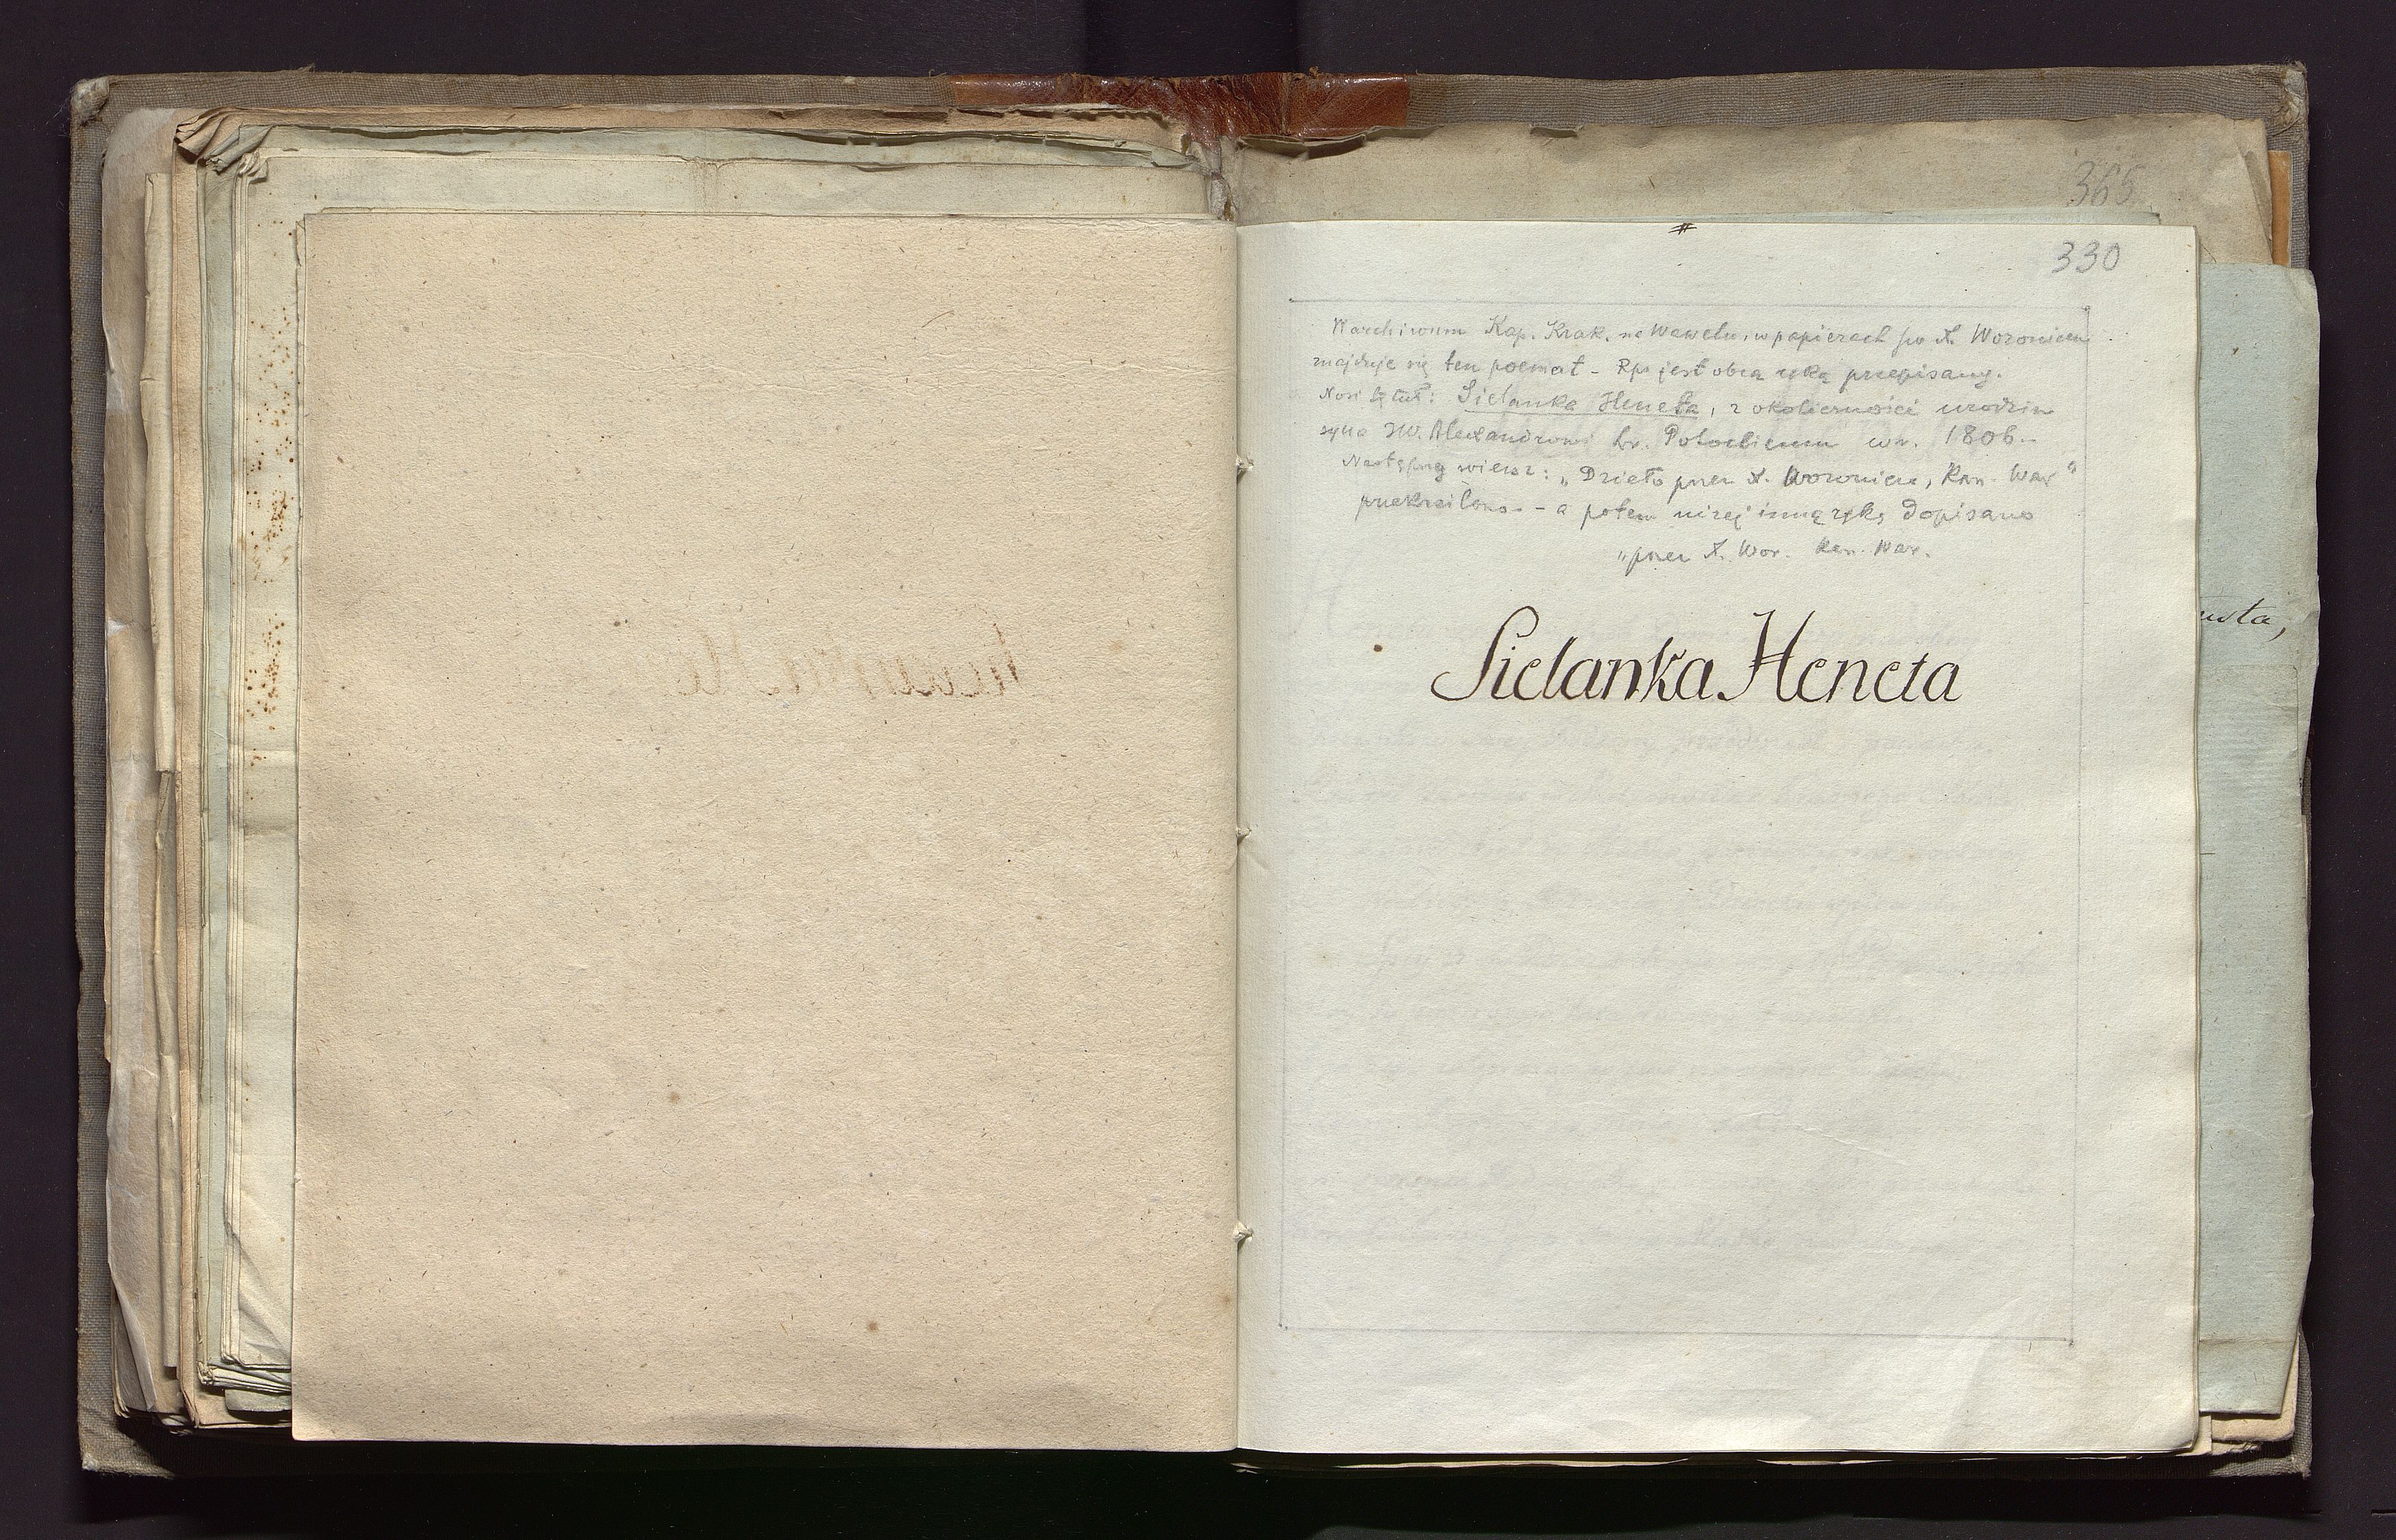 365
330
W archiwum Kap. Krak. na Wawelu, w papierach po X. Woroniczu
znajduje się ten poemat - Rps jest obcą ręką przepisany.
Nosi tytuł: Sielanka Heneta, z okoliczności urodzin
syna JW. Alexandrowi hr. Potockiemu w r. 1806 -
Następny wiersz: „Dzieło przez X. Woronicza, Kan. War"
przekreślono - - a potem niżej inną ręką dopisano
„przez X. Wor. Kan. War.
Sielanka Heneta